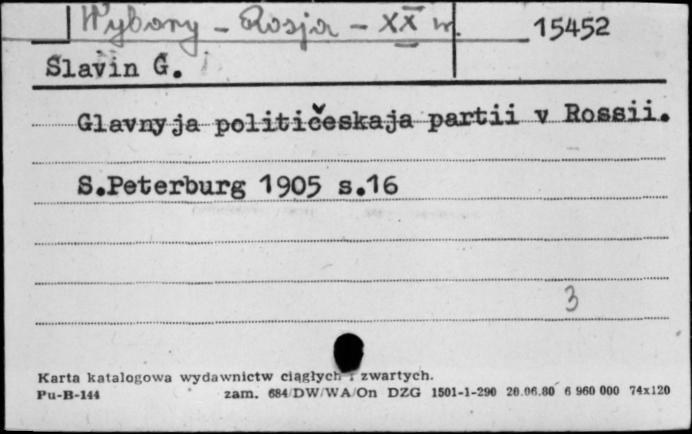 Wybory - Rosja - XX w. 15452
Slavin G.
Glavnyja političeskaja partii v Rossii.
S.Peterburg 1905 s.16
3
Karta katalogowa wydawnictw ciągłych i zwartych.
Pu-B-144 zam. 684/DW/WA/On DZG 1501-1-290 20.06.80 6 960 000 74x120